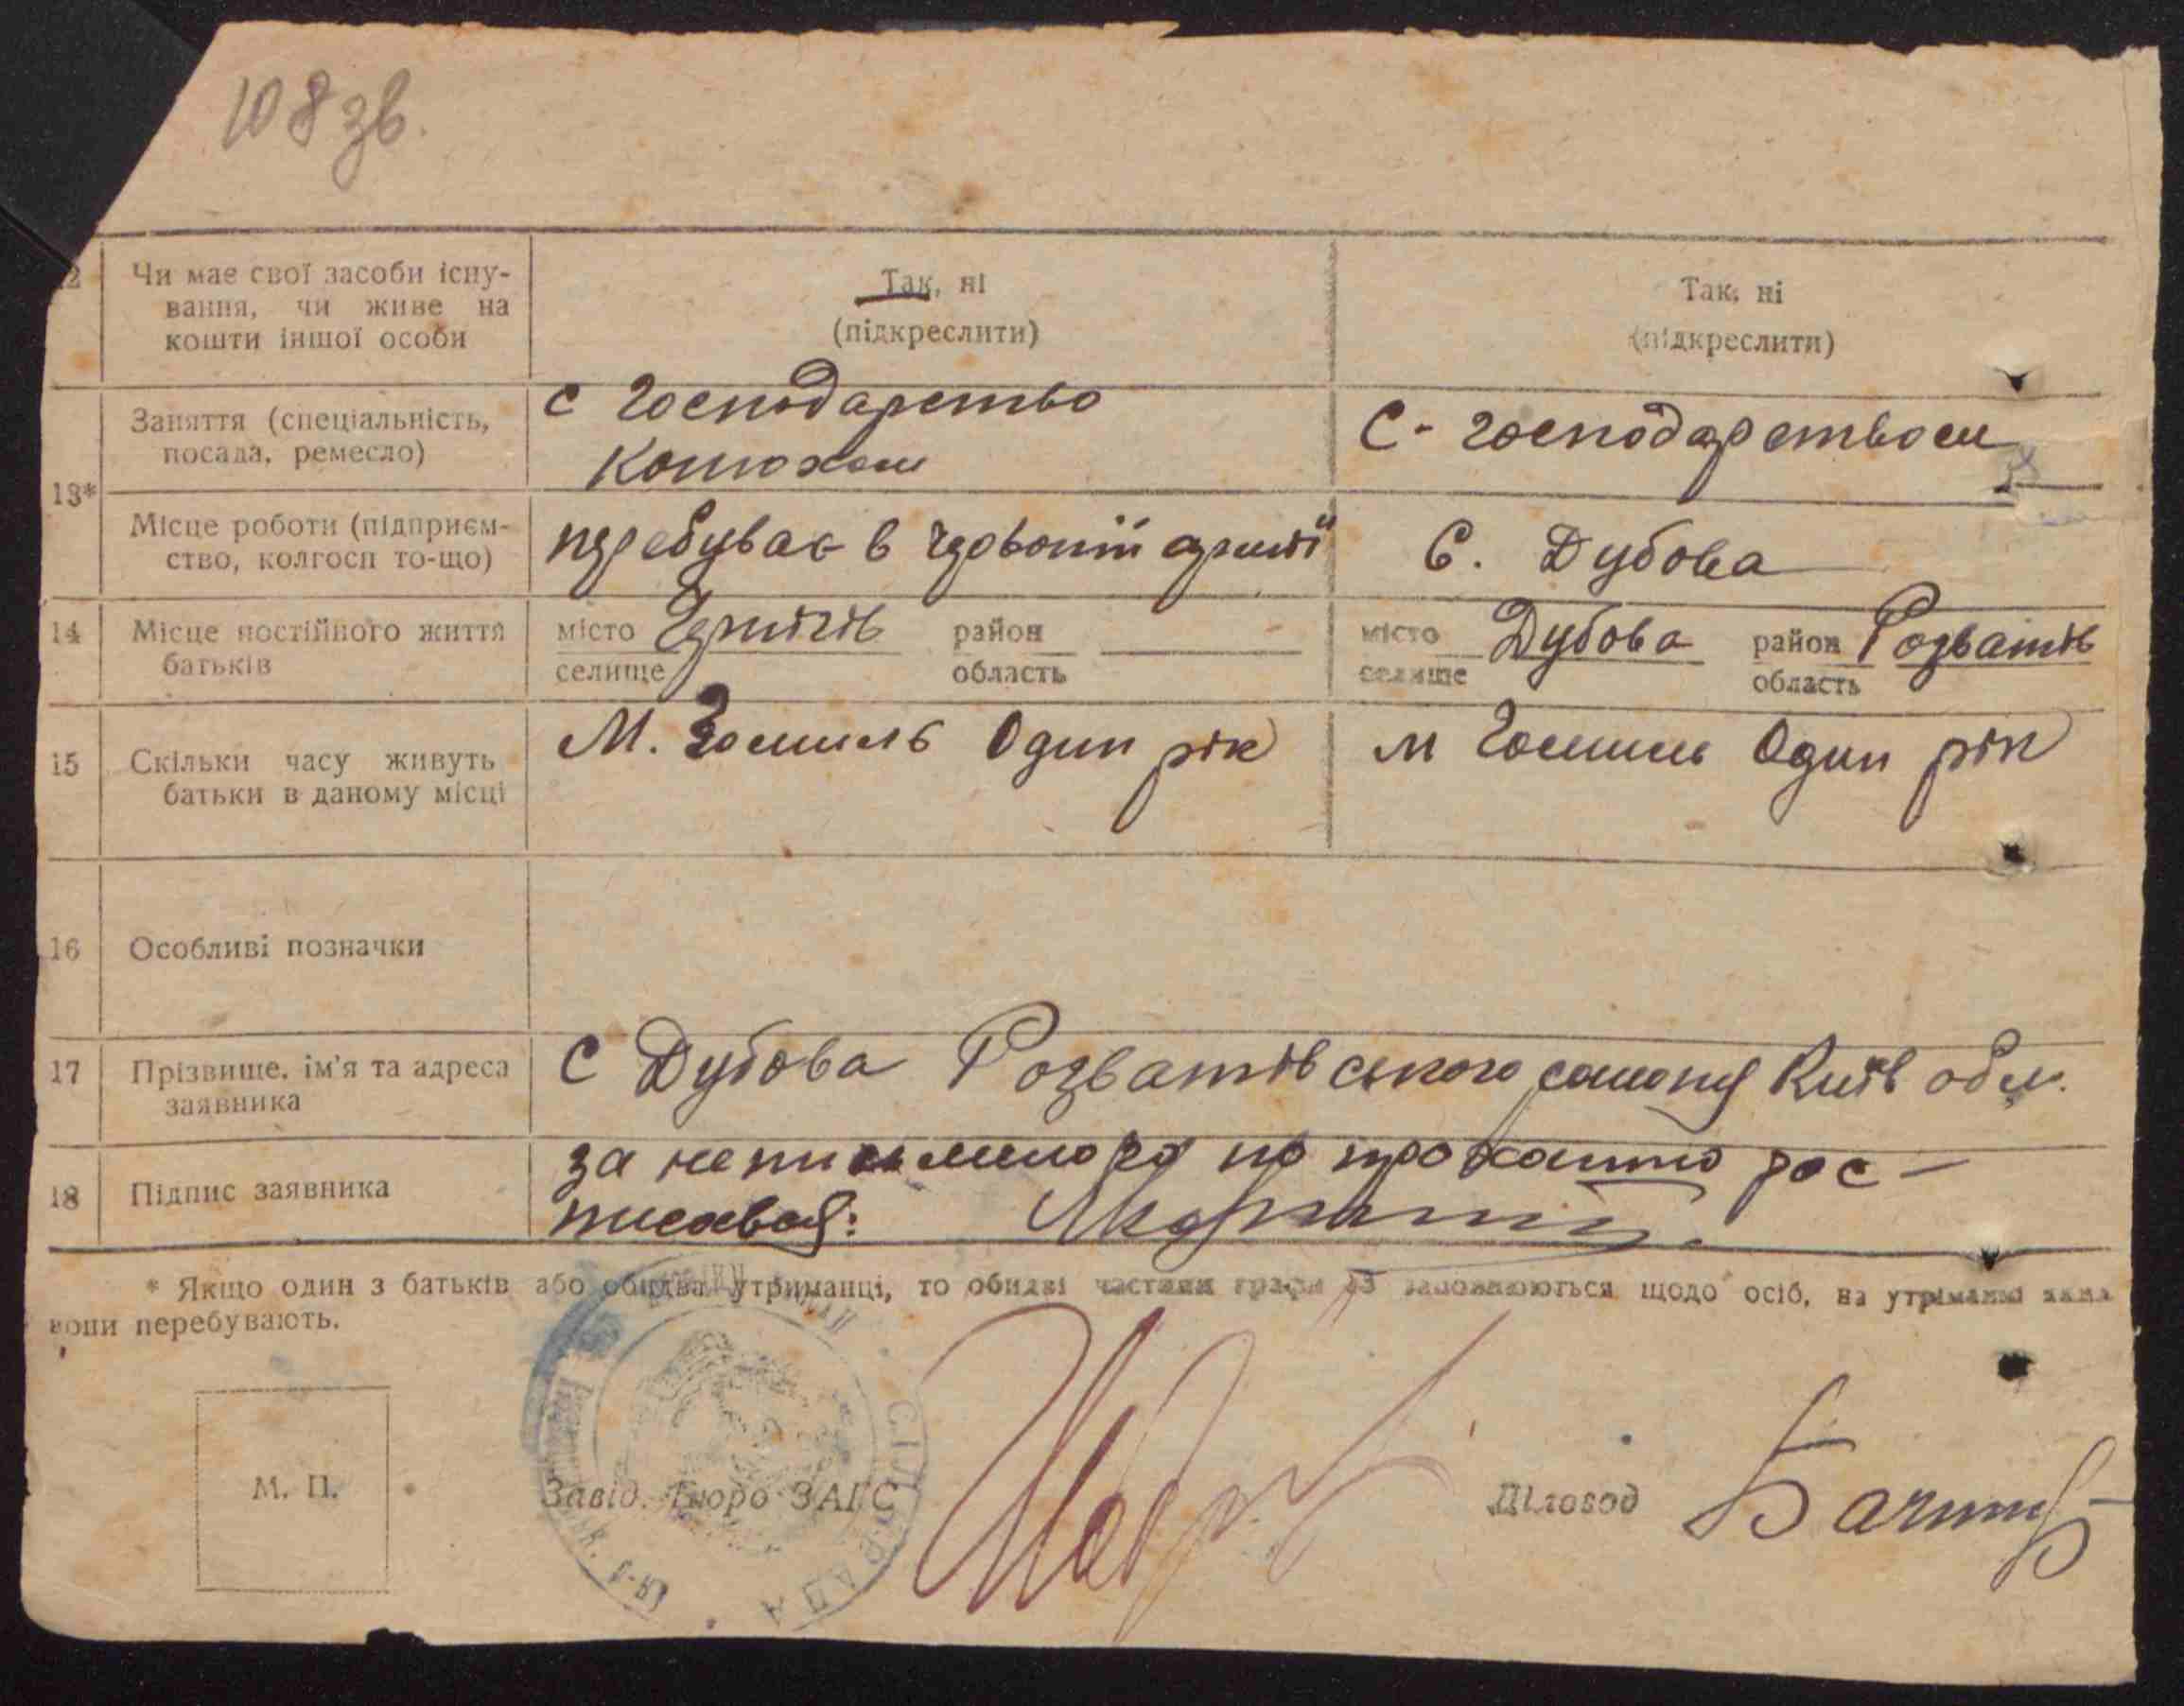 108 зв.
2 Чи має свої засоби існу-
вання, чи живе на
кошти іншої особи
Так, ні
(підкреслити)
Так, ні
(підкреслити)
13*
Заняття (спеціальність,
посада, ремесло)
с господарство
конюхом
С- господарством
Місце роботи (підприєм-
ство, колгосп то-що)
перебуває в червоній армії
С. Дубова
14 Місце постійного життя
батьків
місто Чернігів район
селище область
місто Дубова район Розватів
селище область
15 Скільки часу живуть
батьки в даному місці
М. Гомиль Один рік
м Гомиль Один рік
16 Особливі позначки
17 Прізвище, ім'я та адреса
заявника
С Дубова Розватівського району Київ обл.
18 Підпис заявника
за неписьменого по проханню рос-
писався:
* Якщо один з батьків або обидва утриманці, то обидві частини графи 13 заповнюються щодо осіб, на утриманні яких
вони перебувають.
М. П.
СІЛЬРАДА
Завід. Бюро ЗАГС
Діловод